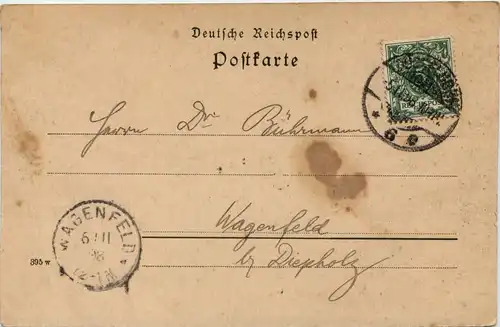 Deutsche Reichspost
Postkarte
Herrn Dr Bührmann
Wagenfeld
by Diepholz
WAGENFELD
6/11
98
12-1N
895 w